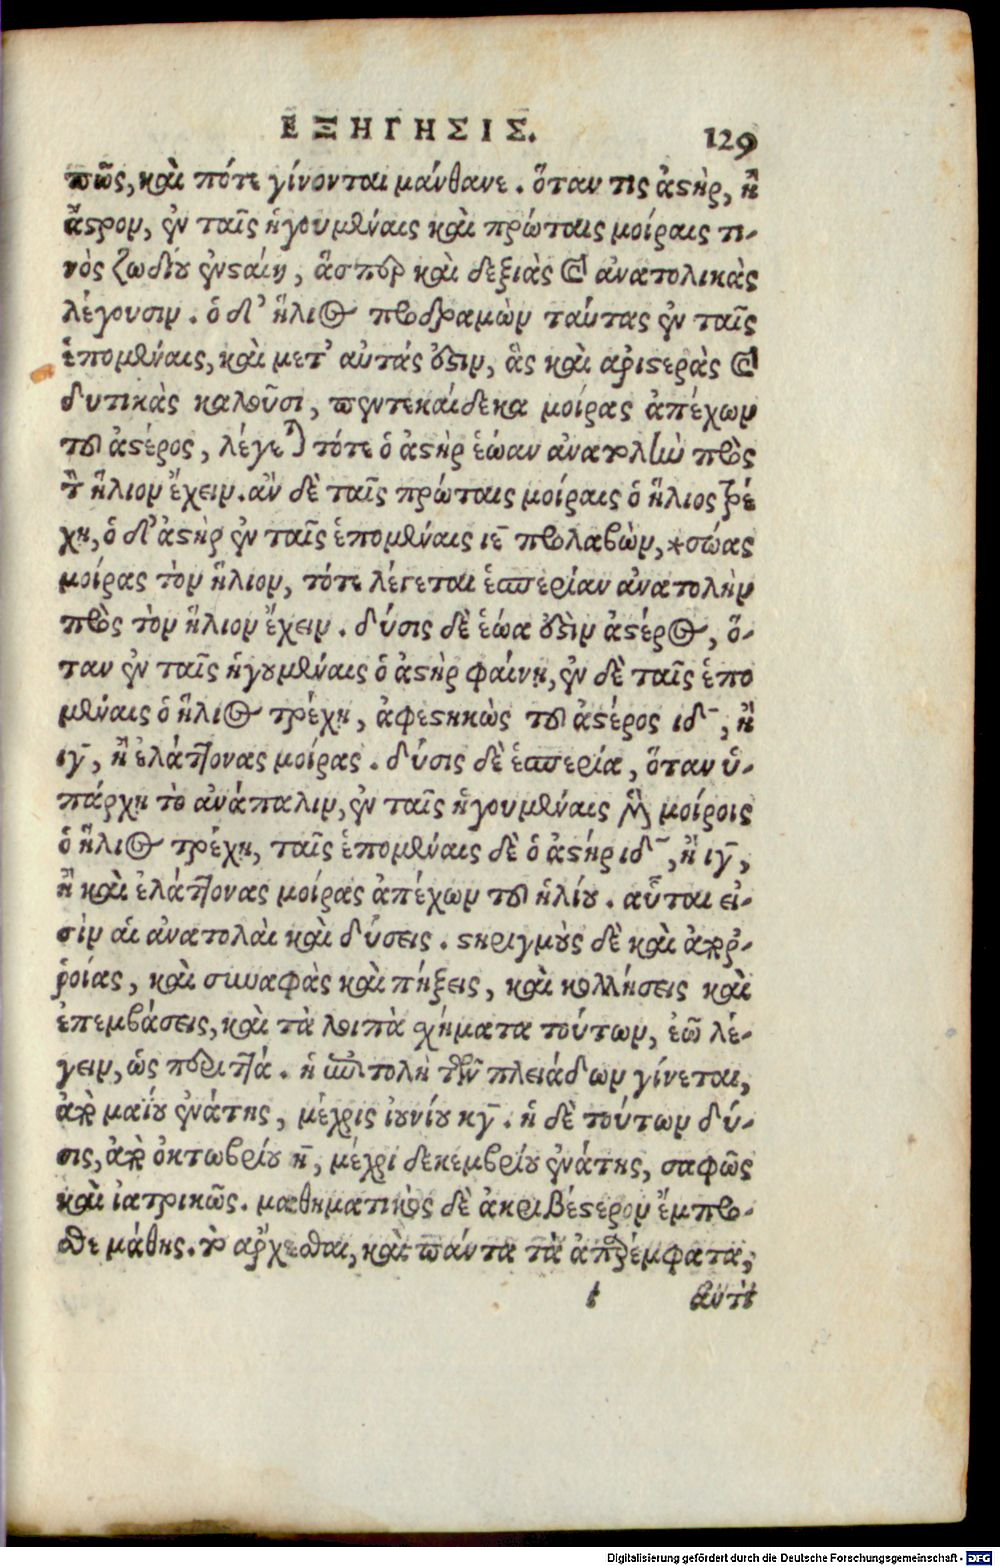 ΕΞΗΓΗΣΙΣ. 129
πῶς, καὶ πότε γίνονται μάνθανε. ὅταν τις ἀστὴρ, ἢ
ἄστρον, ἐν ταῖς ἡγουμέναις καὶ πρώταις μοίραις τι-
νὸς ζωδίου ἐνσταίη, ἅσπερ καὶ δεξιὰς καὶ ἀνατολικὰς
λέγουσιν. ὁ δ' ἥλιος προδραμὼν ταύτας ἐν ταῖς
ἑπομέναις, καὶ μετ' αὐτάς ἐστιν, ἃς καὶ ἀριστερὰς καὶ
δυτικὰς καλοῦσι, πεντεκαίδεκα μοίρας ἀπέχων
τοῦ ἀστέρος, λέγεται τότε ὁ ἀστὴρ ἑώαν ἀνατολὴν πρὸς
τὸν ἥλιον ἔχειν. ἂν δὲ ταῖς πρώταις μοίραις ὁ ἥλιος τρέ
χῃ, ὁ δ' ἀστὴρ ἐν ταῖς ἑπομέναις ιε̄ προλαβὼν, *σώας
μοίρας τὸν ἥλιον, τότε λέγεται ἑσπερίαν ἀνατολὴν
πρὸς τὸν ἥλιον ἔχειν. δύσις δὲ ἑώα ἐστὶν ἀστέρος, ὅ-
ταν ἐν ταῖς ἡγουμέναις ὁ ἀστὴρ φαίνῃ, ἐν δὲ ταῖς ἑπο
μέναις ὁ ἥλιος τρέχῃ, ἀφεστηκὼς τοῦ ἀστέρος ιδ̄, ἢ
ιγ̄, ἢ ἐλάττονας μοίρας. δύσις δὲ ἑσπερία, ὅταν ὑ-
πάρχῃ τὸ ἀνάπαλιν, ἐν ταῖς ἡγουμέναις μὲν μοίροις
ὁ ἥλιος τρέχῃ, ταῖς ἑπομέναις δὲ ὁ ἀστήρ ιδ̄, ἢ ιγ̄,
ἢ καὶ ἐλάττονας μοίρας ἀπέχων τοῦ ἡλίου. αὗται εἰ-
σὶν αἱ ἀνατολαὶ καὶ δύσεις. στηριγμοὺς δὲ καὶ ἀποῤ-
ῥοίας, καὶ συναφὰς καὶ πήξεις, καὶ κολλήσεις καὶ
ἐπεμβάσεις, καὶ τὰ λοιπὰ σχήματα τούτων, ἐῶ λέ-
γειν, ὡς περιττά. ἡ ἐπιτολὴ τῶν πλειάδων γίνεται,
ἀπὸ μαΐου ἐνάτης, μέχρις ἰουνίου κγ̄. ἡ δὲ τούτων δύ-
σις, ἀπὸ ὀκτωβρίου η̄, μέχρι δεκεμβρίου ἐνάτης, σαφῶς
καὶ ἰατρικῶς. μαθηματικὸς δὲ ἀκριβέστερον ἔμπρο-
σθε μάθης. τὸ ἄρχεσθαι, καὶ πάντα τὰ ἀπαρέμφατα,
ι αὐτὶ
Digitalisierung gefördert durch die Deutsche Forschungsgemeinschaft - DFG